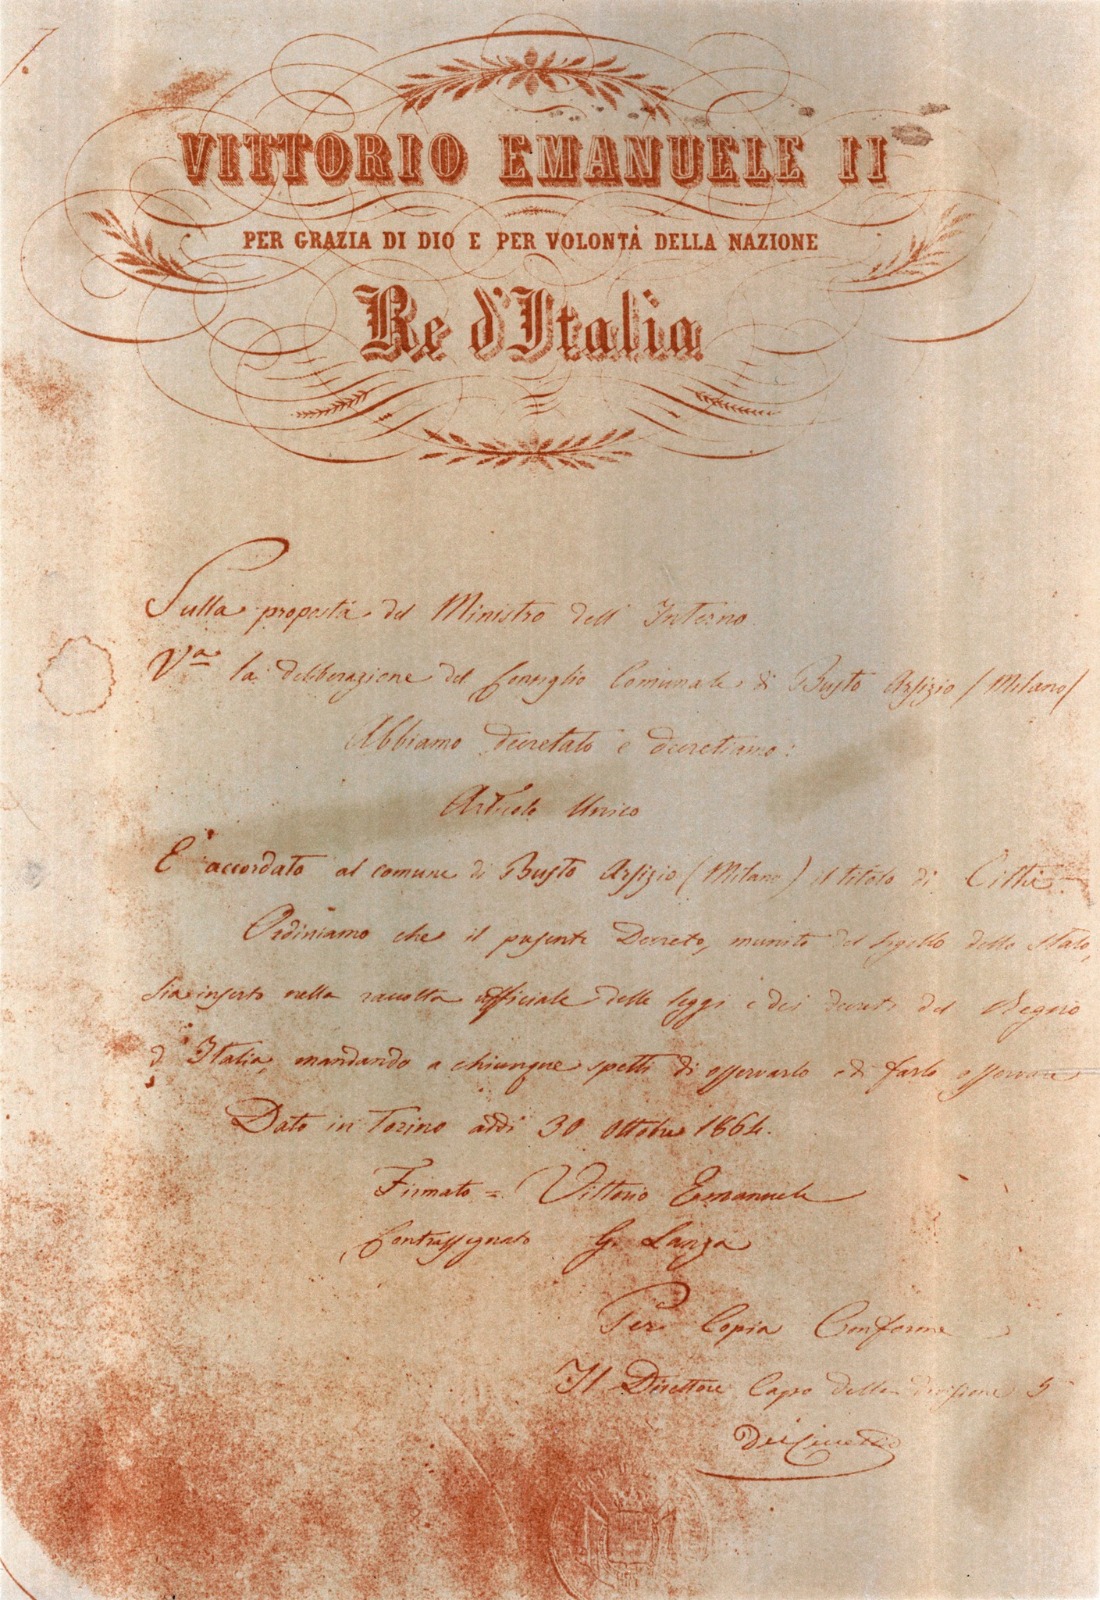 VITTORIO EMANUELE II
PER GRAZIA DI DIO E PER VOLONTÀ DELLA NAZIONE
Re d'Italia
Sulla proposta del Ministro dell' Interno
Vᵃ la deliberazione del Consiglio Comunale di Busto Arsizio /Milano/
Abbiamo decretato e decretiamo:
Articolo Unico
E' accordato al comune di Busto Arsizio (Milano) il titolo di Città.
Ordiniamo che il presente Decreto, munito del sigillo dello Stato,
sia inserto nella raccolta ufficiale delle leggi e dei decreti del Regno
d' Italia, mandando a chiunque spetti di osservarlo e di farlo osservare
Dato in Torino addì 30 ottobre 1864.
Firmato = Vittorio Emanuele
Contrassegnato G. Lanza
Per Copia Conforme
Il Direttore Capo della divisione 5